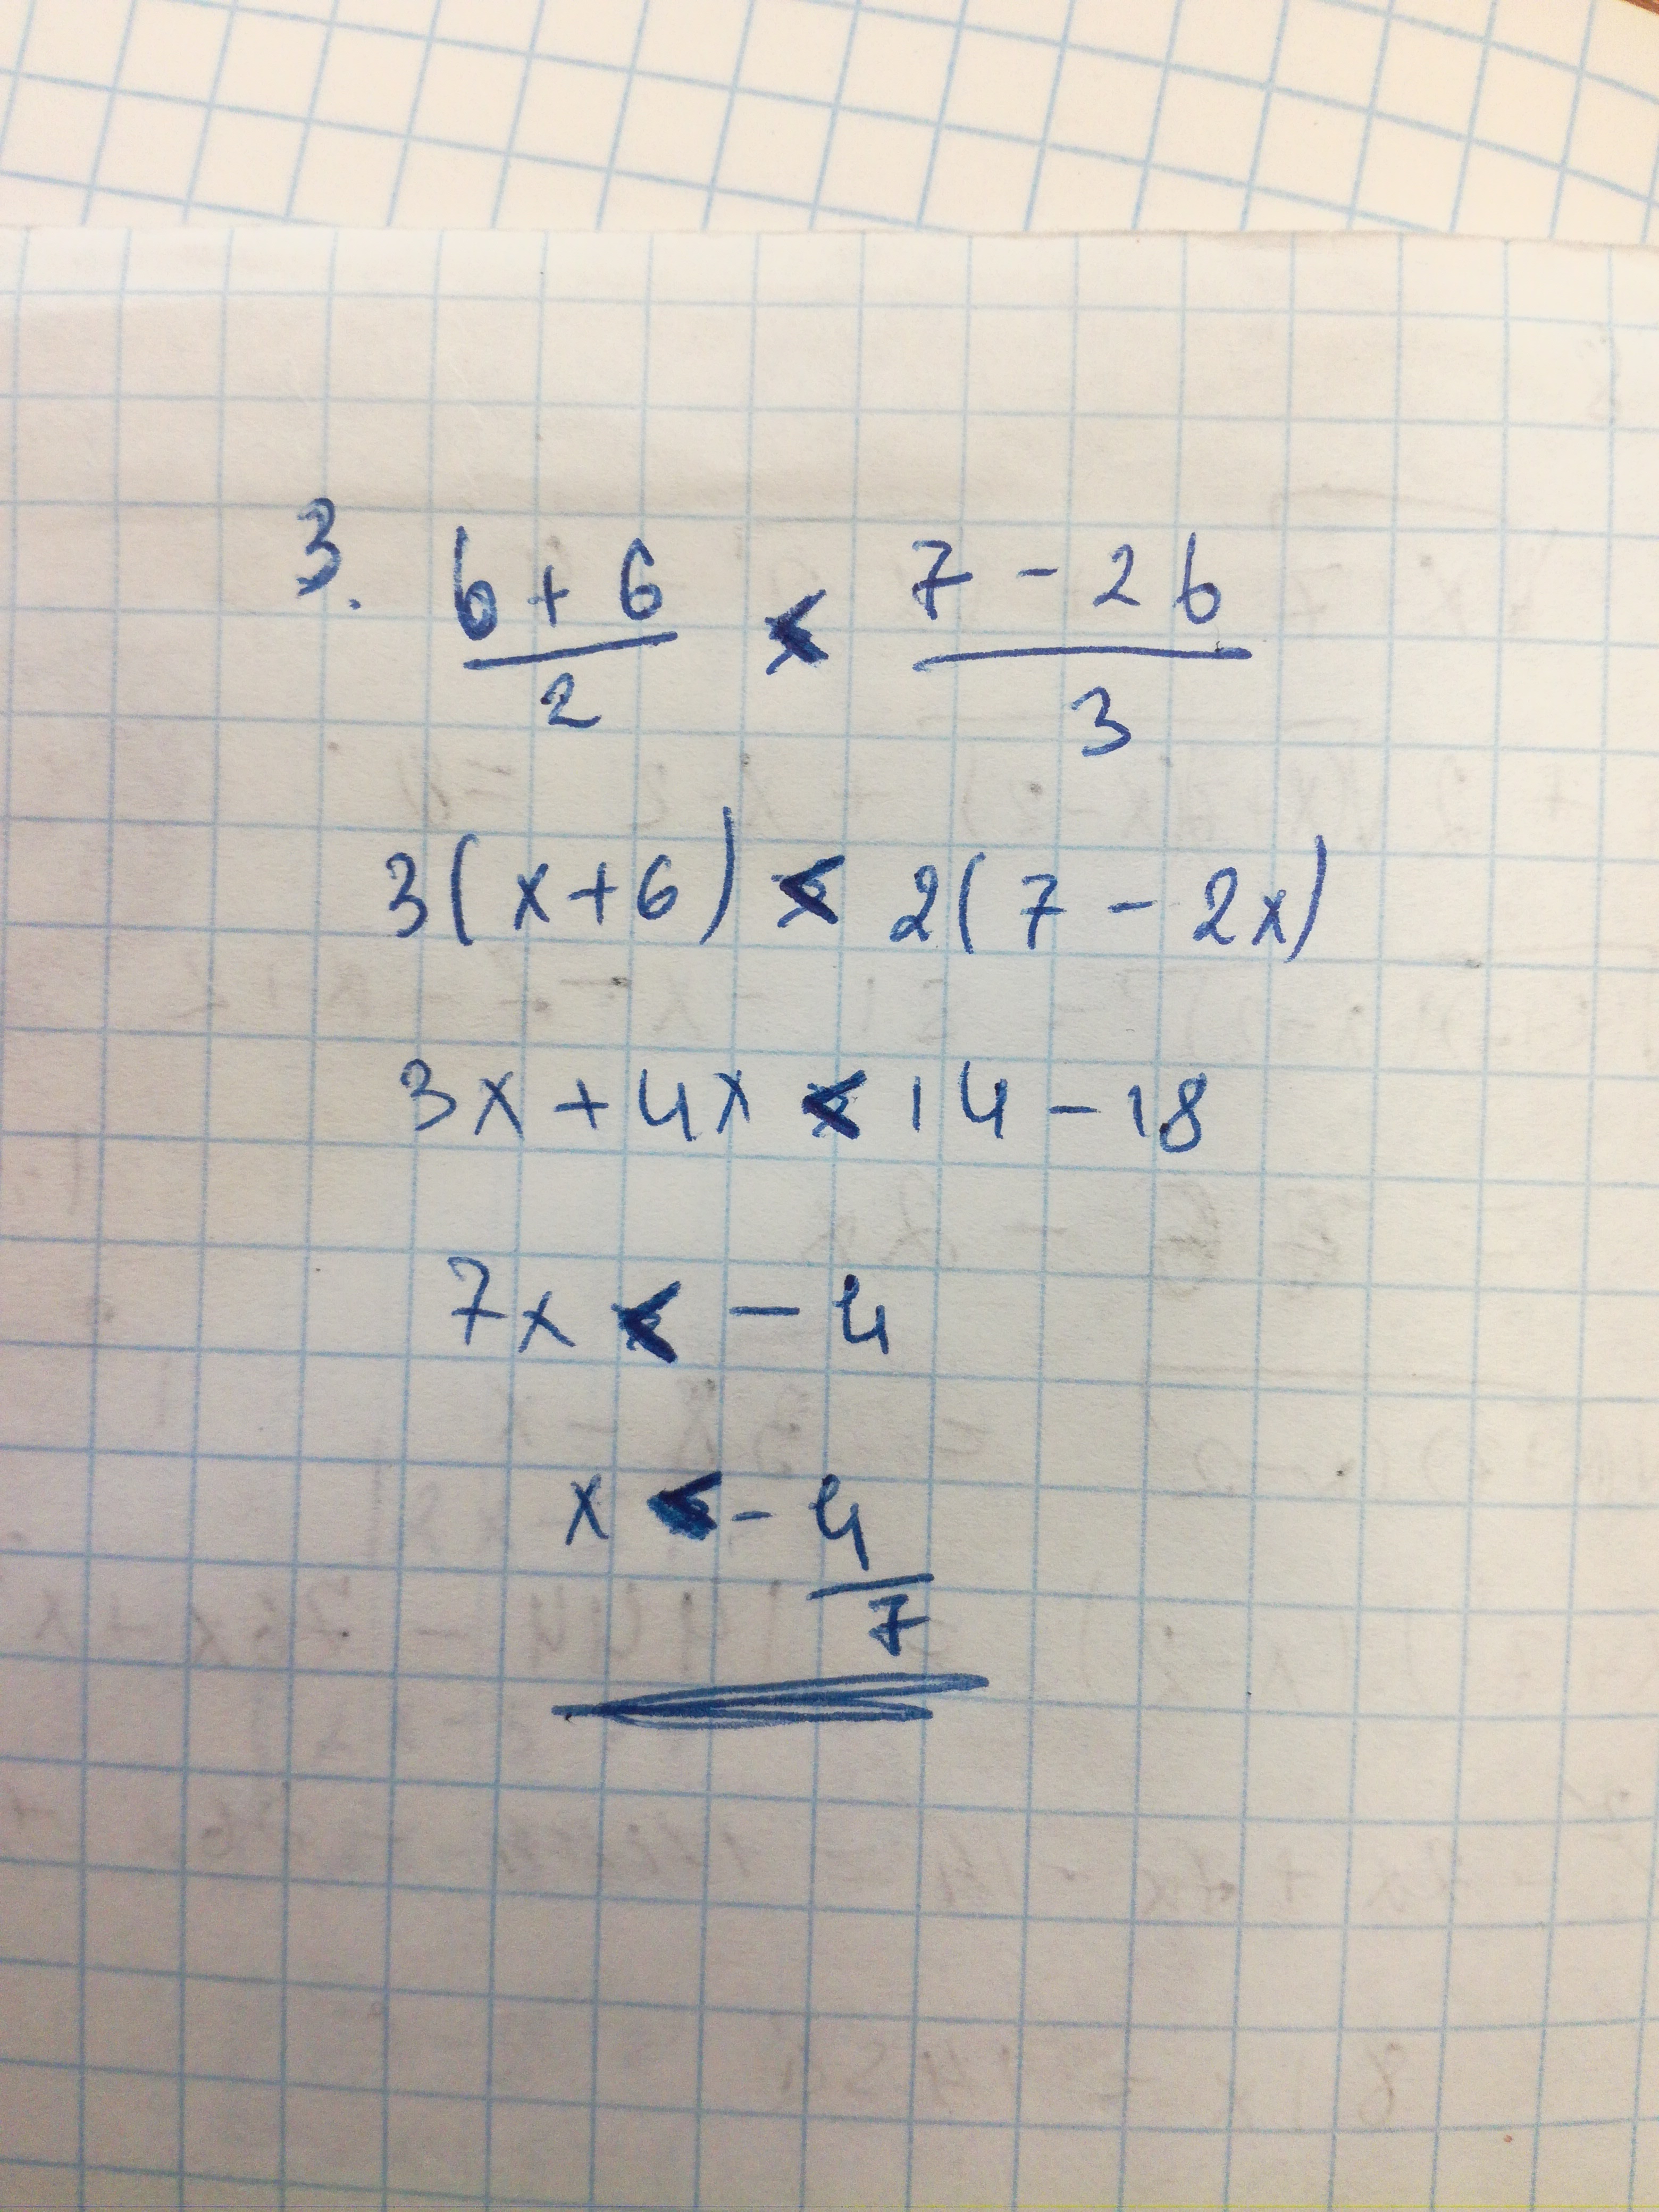 3. b + 6 < 7 - 2b
2 3
3(x+6) < 2(7 - 2x)
3x + 4x < 14 - 18
7x < - 4
x < - 4
7